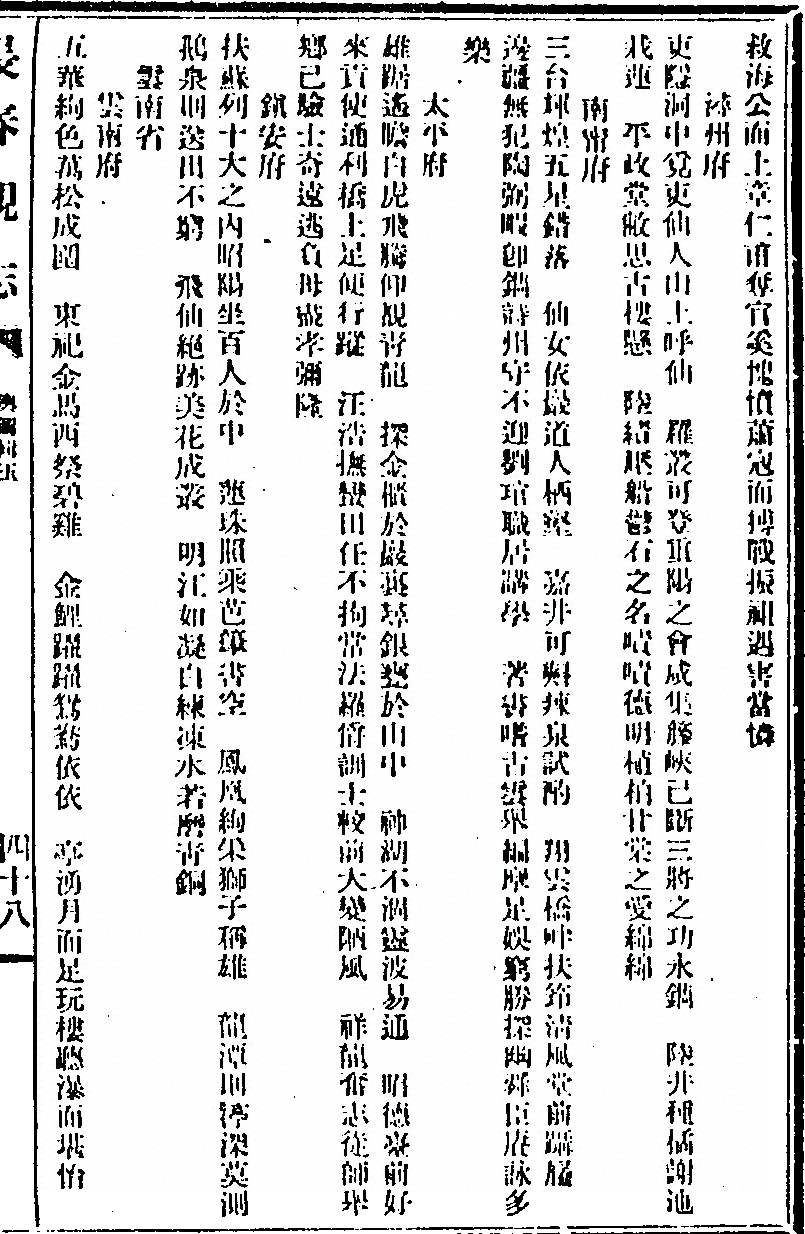 救海公而上章仁甫奪官奚愧憤蕭寇而搏戰振補遇害當憐
潯州府
吏隱洞中覓吏仙人山上呼仙　羅叢可登重陽之會咸集藤峽已斷三將之功永鐫　陸井種橘謝池
栽蓮　平政堂敞思古樓懸　陸績廉船鬱石之名嘖嘖德明植柏甘棠之愛綿綿
南甯府
三台輝煌五星錯落　仙女依巖道人栖壑　嘉井可斟捒泉試酌　翔雲橋畔扶筇清風堂前躡屩
邊疆無犯陶弼暇卽鐫詩州守不迎劉瑄職居講學　著書嗜古雲舉桐庠足娛窮勝探幽舜臣庠詠多
樂
太平府
雄踞遙瞻白虎飛騰仰觀青龍　探金櫃於巖裏尋銀甕於山中　神湖不涸靈波易通　昭德臺前好
來賓使通利橋上足便行蹤　汪浩撫蠻田任不拘常法羅脩訓士較前大變陋風　祥龍奮志從師舉
鄉已驗士奇遠逃負母盛孝彌隆
鎮安府
扶蘇列十大之內昭陽坐百人於中　蓮珠照乘芭籙書空　鳳凰絢采獅子稱雄　龍潭則渟深莫測
鵝泉則送田不窮　飛仙絕跡美花成叢　明江如凝白練凍水若磨青銅
雲南省
雲南府
五華絢色萬松成圍　東祀金馬西祭碧雞　金鯉躍躍鴛鴦依依　亭湧月而足玩樓聽瀑而堪怡
四十八